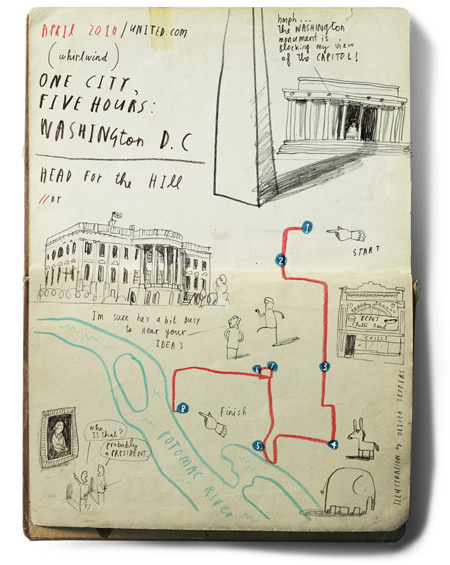 APRIL 2010 / UNITED.COM
(whirlwind)
ONE CITY,
FIVE HOURS:
WASHINGton D.C
HEAD for the Hill
//BY
hmph...
the WASHINGton
monument is
blocking my view
of the CAPITOL!
1
START
2
BEN'S
Chili Bowl
CHILI
I'm sure he's a bit busy
to Hear your
IDEA's
3
6
7
8
Finish
5
4
Who
is that?
probably
a PRESIDENT.
POTOMAC RIVER
ILLUSTRATION by OLIVER JEFFERS